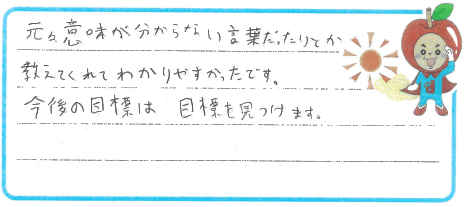 元々意味が分からない言葉だったりとか
教えてくれてわかりやすかったです。
今後の目標は 目標を見つけます。